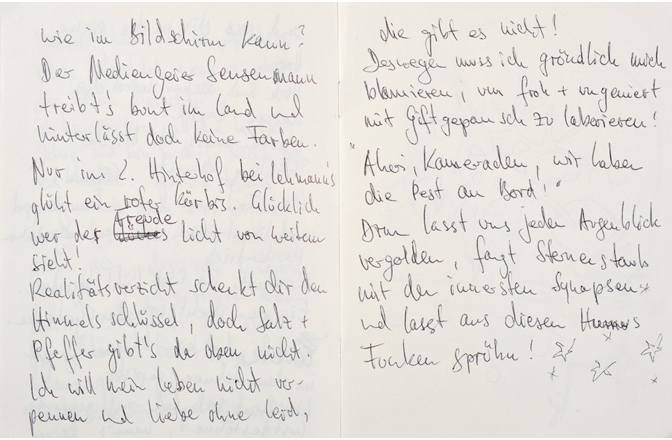 wie im Bildschirm kann?
Der Mediengeier Sensenmann
treibt's bunt im Land und
hinterlässt doch keine Farben.
Nur im 2. Hinterhof bei Lehmann's
glüht ein roter Kürbis. Glücklich
Freude
wer der licht von weitem
sieht!
Realitätsverzicht schenkt dir den
Himmelsschlüssel, doch Salz +
Pfeffer gibt's da oben nicht.
Ich will mein Leben nicht ver-
pennen und Liebe ohne Leid,
die gibt es nicht!
Deswegen muss ich gründlich mich
blamieren, um froh + ungeniert
mit Giftgepansch zu laborieren!
"Ahoi, Kameraden, wir haben
die Pest an Bord!"
Drum lasst uns jeden Augenblick
vergolden, fangt Sternenstaub
mit den innersten Synapsen
und lasst aus diesen
Funken sprühn!